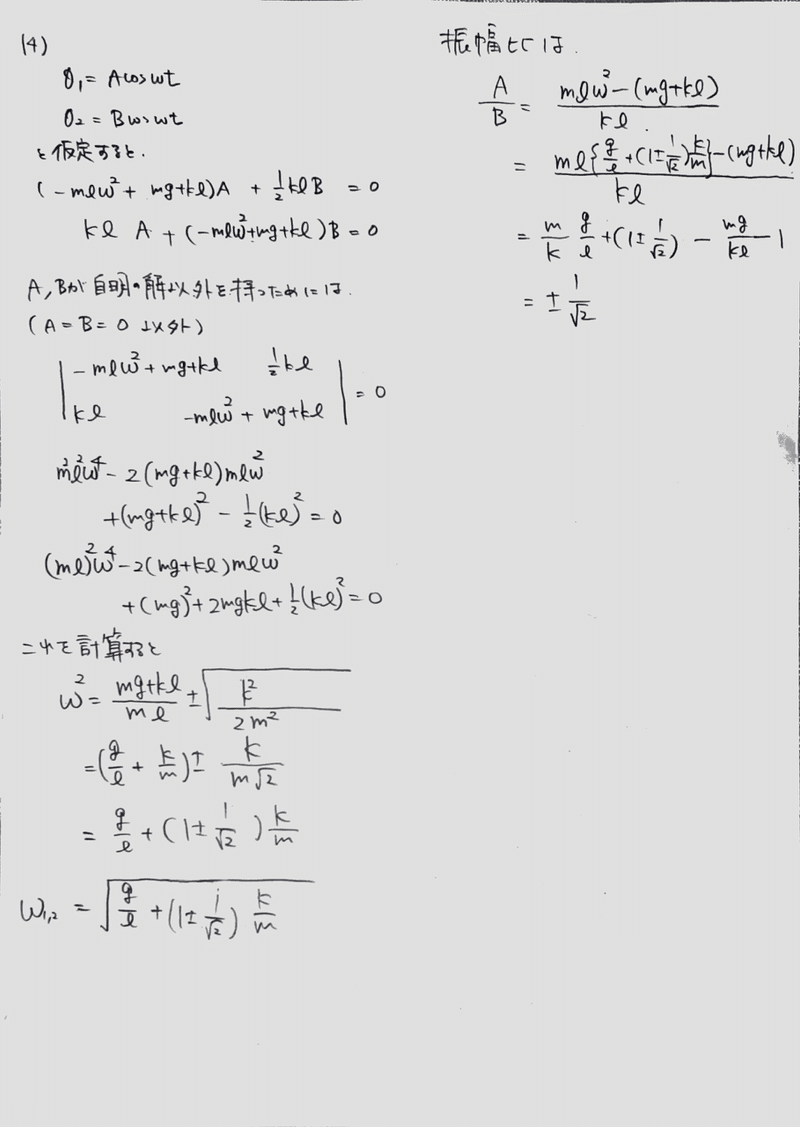 (4)
θ₁ = A cos ωt
θ₂ = B cos ωt
と仮定すると.
(-mlω² + mg+kl)A + ½klB = 0
kl A + (-mlω²+mg+kl)B = 0
A, Bが自明の解以外を持つためには.
(A = B = 0 以外)
| -mlω² + mg+kl ½kl |
| kl -mlω² + mg+kl | = 0
m²l²ω⁴ - 2(mg+kl)mlω²
+(mg+kl)² - ½(kl)² = 0
(ml)²ω⁴ - 2(mg+kl)mlω²
+(mg)² + 2mgkl + ½(kl)² = 0
これを計算すると
ω² = (mg+kl)/(ml) ± √(k²/(2m²))
= (g/l + k/m) ± k/(m√2)
= g/l + (1 ± 1/√2) k/m
ω₁,₂ = √(g/l + (1 ± 1/√2) k/m)
振幅比は.
A/B = (mlω² - (mg+kl))/(kl)
= (ml{g/l + (1 ± 1/√2) k/m} - (mg+kl))/(kl)
= m/k g/l + (1 ± 1/√2) - mg/(kl) - 1
= ± 1/√2